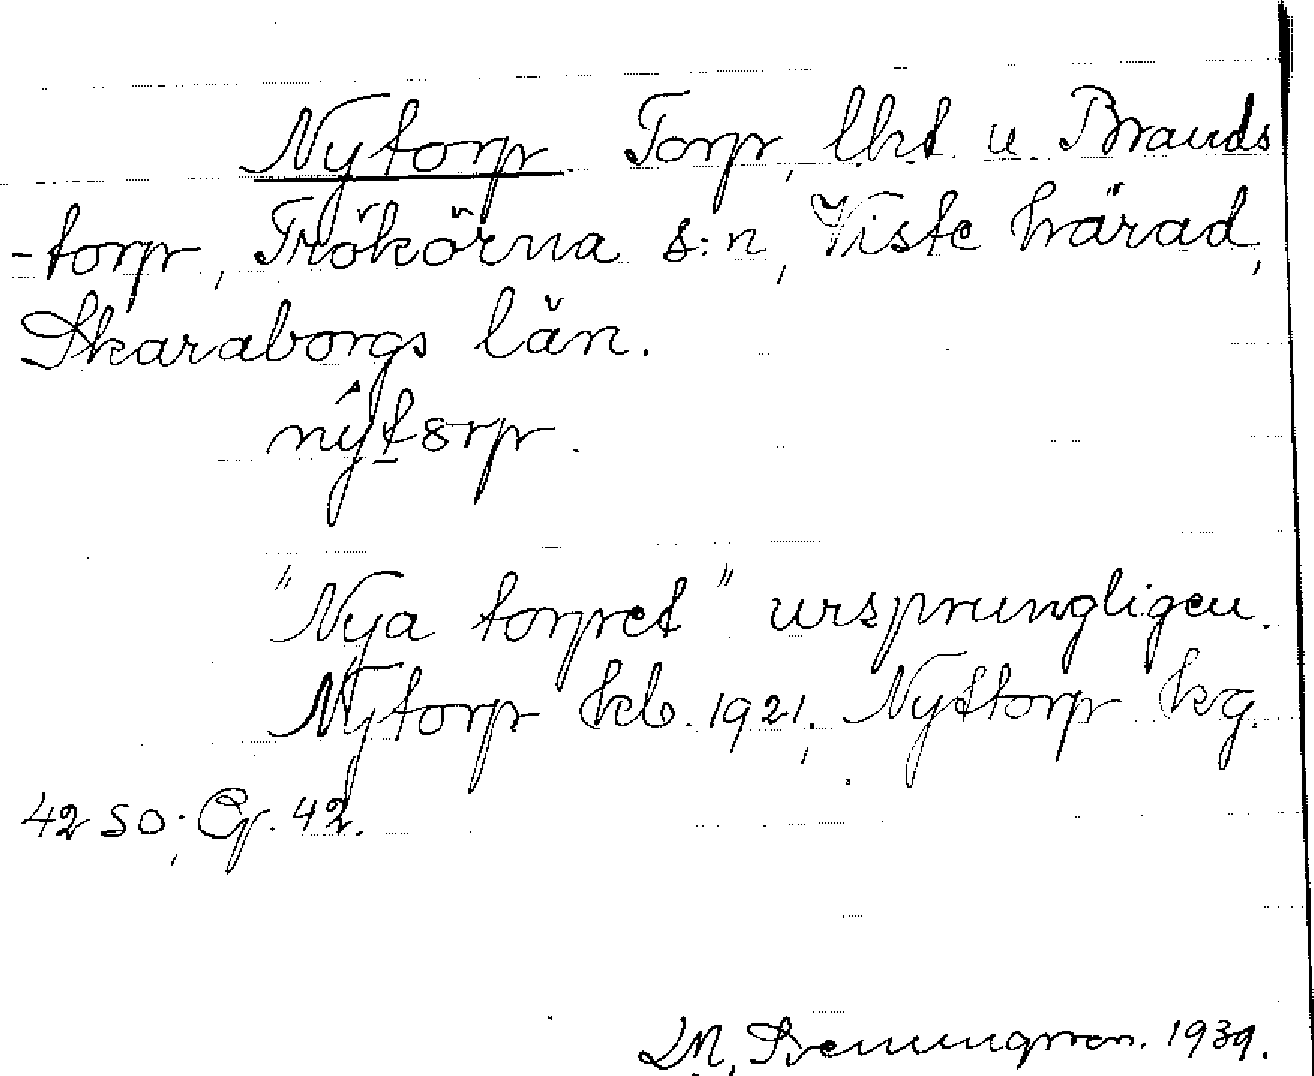 Nytorp Torp, lht u Brands
-torp, Trökörna s:n, Viste härad,
Skaraborgs län.
nýtorp.
"Nya torpet" ursprungligen.
Nytorp kb. 1921, Nyttorp kg.
42 SO; Cg. 42.
1939.